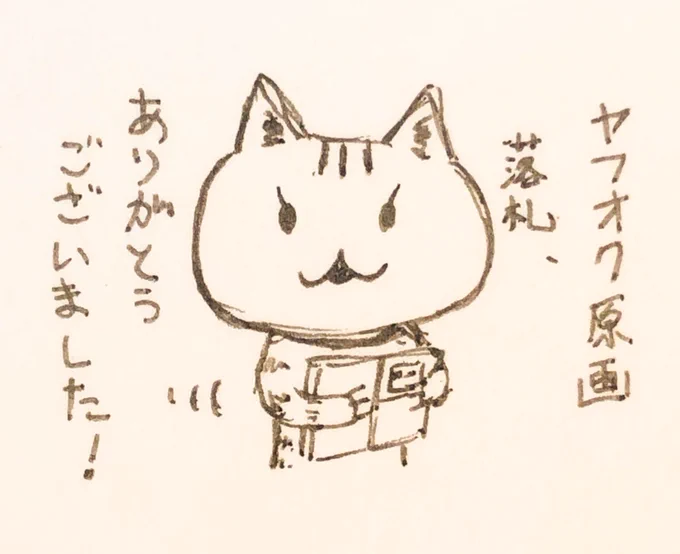 ヤフオク原画
落札、
ありがとう
ございました!